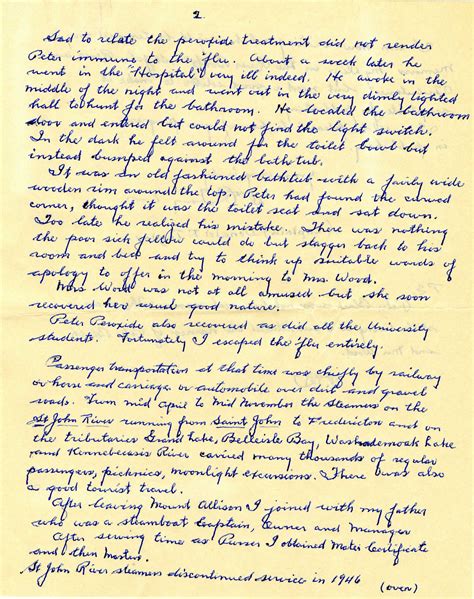 2.
Sad to relate the peroxide treatment did not render
Peter immune to the flu. About a week later he
went in the "Hospital" very ill indeed. He awoke in the
middle of the night and went out in the very dimly lighted
hall to hunt for the bathroom. He located the bathroom
door and entered but could not find the light switch.
In the dark he felt around for the toilet bowl but
instead bumped against the bathtub.
It was an old fashioned bathtub with a fairly wide
wooden rim around the top. Peter had found the curved
corner, thought it was the toilet seat and sat down.
Too late he realized his mistake. There was nothing
the poor sick fellow could do but stagger back to his
room and bed and try to think up suitable words of
apology to offer in the morning to Mrs. Wood.
Mrs Wood was not at all amused but she soon
recovered her usual good nature.
Peter Peroxide also recovered as did all the University
students. Fortunately I escaped the flu entirely.
Passenger transportation at that time was chiefly by railway
or horse and carriage or automobile over dirt and gravel
roads. From mid April to Mid November the Steamers on the
St John River running from Saint John to Fredericton and on
the tributaries Grand Lake, Belleisle Bay, Washademoak Lake
and Kennebecasis River carried many thousands of regular
passengers, picnics, moonlight excursions. There was also
a good tourist travel.
After leaving Mount Allison I joined with my father
who was a steamboat Captain, Owner and Manager
After serving time as Purser I obtained Mates Certificate
and then Masters.
St John River steamers discontinued service in 1946
(over)